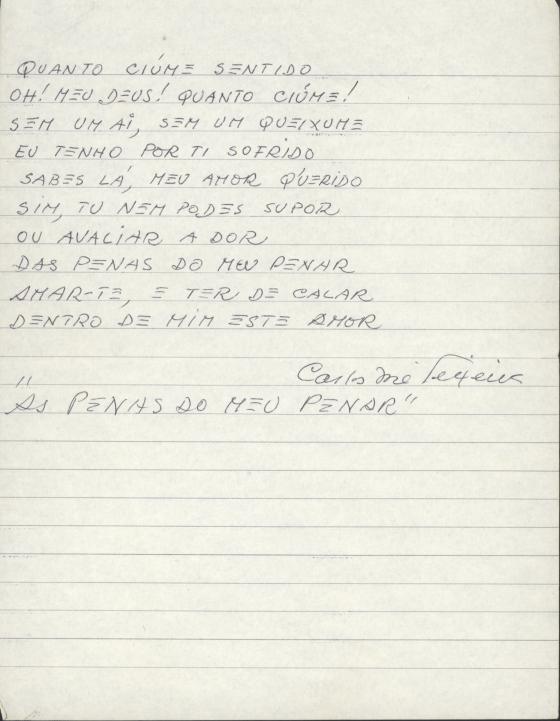 QUANTO CIÚME SENTIDO
OH! MEU DEUS! QUANTO CIÚME!
SEM UM AI, SEM UM QUEIXUME
EU TENHO POR TI SOFRIDO
SABES LÁ, MEU AMOR QUERIDO
SIM, TU NEM PODES SUPOR
OU AVALIAR A DOR
DAS PENAS DO MEU PENAR
AMAR-TE, E TER DE CALAR
DENTRO DE MIM ESTE AMOR
Carlos Teixeira
"AS PENAS DO MEU PENAR"